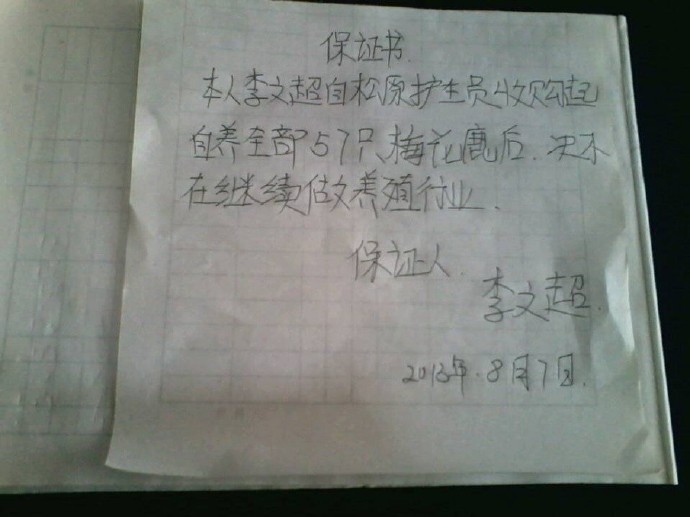 保证书.
本人李文超自松原护生员收购起
自养全部57只梅花鹿后.决不
在继续做养殖行业.
保证人.
李文超.
2013年.8月7日.